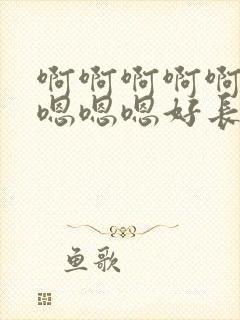 啊啊啊啊啊
嗯嗯嗯好長
鱼歌